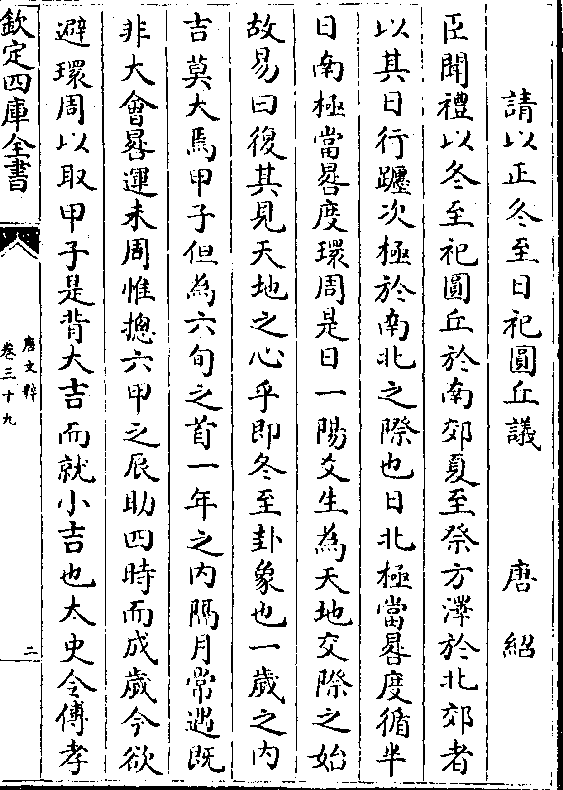 請以正冬至日祀圓丘議　唐紹
臣聞禮以冬至祀圓丘於南郊夏至祭方澤於北郊者
以其日行躔次極於南北之際也日北極當晷度循半
日南極當晷度環周是日一陽爻生為天地交際之始
故易曰復其見天地之心乎即冬至卦象也一歲之内
吉莫大焉甲子但為六旬之首一年之内隔月常遇既
非大會晷運未周惟揔六甲之辰助四時而成歲今欲
避環周以取甲子是背大吉而就小吉也太史令傅孝
欽定四庫全書
唐文粹
卷三十九
二